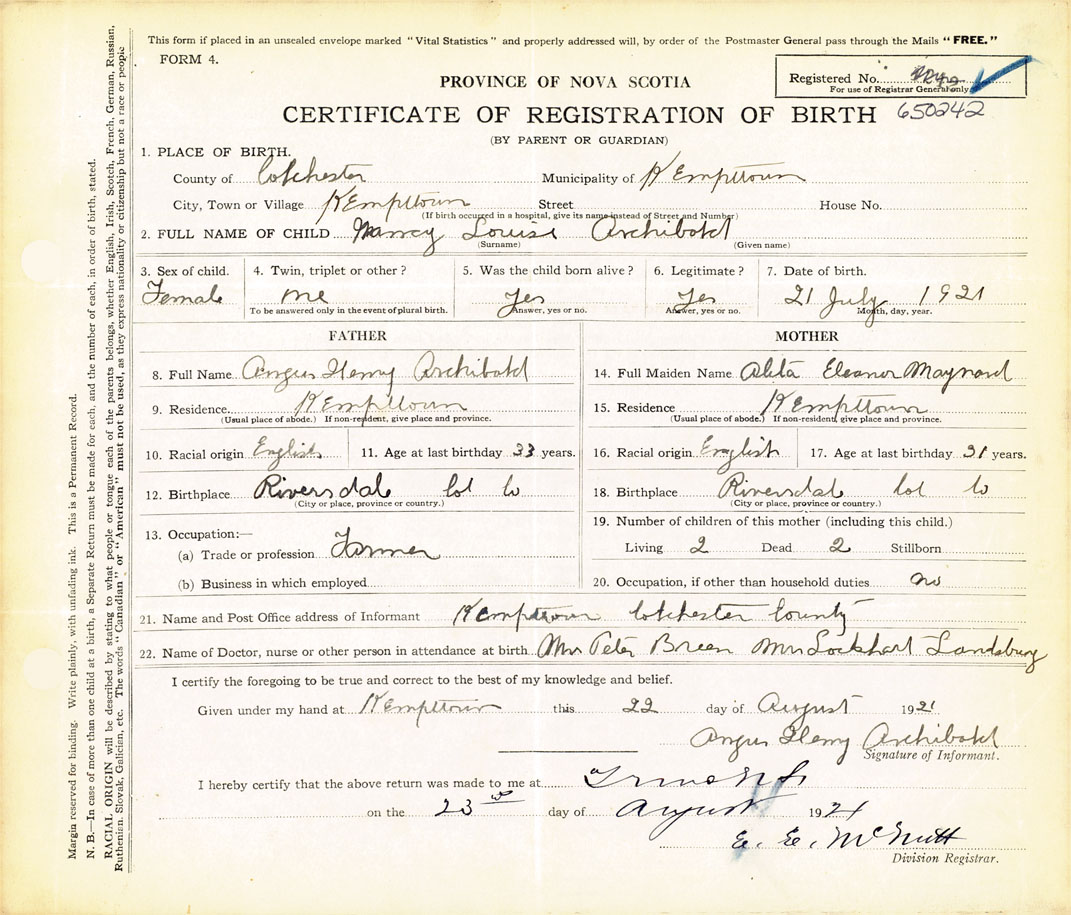 This form if placed in an unsealed envelope marked "Vital Statistics" and properly addressed will, by order of the Postmaster General pass through the Mails "FREE."
FORM 4.
Registered No.
For use of Registrar General only
650242
PROVINCE OF NOVA SCOTIA
CERTIFICATE OF REGISTRATION OF BIRTH
(BY PARENT OR GUARDIAN)
1. PLACE OF BIRTH.
County of Colchester Municipality of Kempttown
City, Town or Village Kempttown Street House No.
(If birth occurred in a hospital, give its name instead of Street and Number)
2. FULL NAME OF CHILD Nancy Louise Archibald
(Surname) (Given name)
3. Sex of child. 4. Twin, triplet or other? 5. Was the child born alive? 6. Legitimate? 7. Date of birth.
Female one Yes Yes 21 July 1921
To be answered only in the event of plural birth. Answer, yes or no. Answer, yes or no. Month, day, year.
FATHER MOTHER
8. Full Name Angus Henry Archibald 14. Full Maiden Name Aleta Eleanor Maynard
9. Residence Kempttown 15. Residence Kempttown
(Usual place of abode.) If non-resident, give place and province. (Usual place of abode.) If non-resident, give place and province.
10. Racial origin English 11. Age at last birthday 33 years. 16. Racial origin English 17. Age at last birthday 31 years.
12. Birthplace Riversdale Col Co 18. Birthplace Riversdale Col Co
(City or place, province or country.) (City or place, province or country.)
13. Occupation:— 19. Number of children of this mother (including this child.)
(a) Trade or profession Farmer Living 2 Dead 2 Stillborn
(b) Business in which employed 20. Occupation, if other than household duties no
21. Name and Post Office address of Informant Kempttown Colchester County
22. Name of Doctor, nurse or other person in attendance at birth Mrs Peter Breen Mrs Lockhart Landsburg
I certify the foregoing to be true and correct to the best of my knowledge and belief.
Given under my hand at Kempttown this 22 day of August 1921
Angus Henry Archibald
Signature of Informant.
I hereby certify that the above return was made to me at Truro N.S.
on the 23rd day of August 1921
E. E. McNutt
Division Registrar.
Margin reserved for binding. Write plainly, with unfading ink. This is a Permanent Record.
N. B.—In case of more than one child at a birth, a Separate Return must be made for each, and the number of each, in order of birth, stated.
RACIAL ORIGIN will be described by stating to what people or tongue each of the parents belongs, whether English, Irish, Scotch, French, German, Russian,
Ruthenian, Slovak, Galician, etc. The words "Canadian" or "American" must not be used, as they express nationality or citizenship but not a race or people